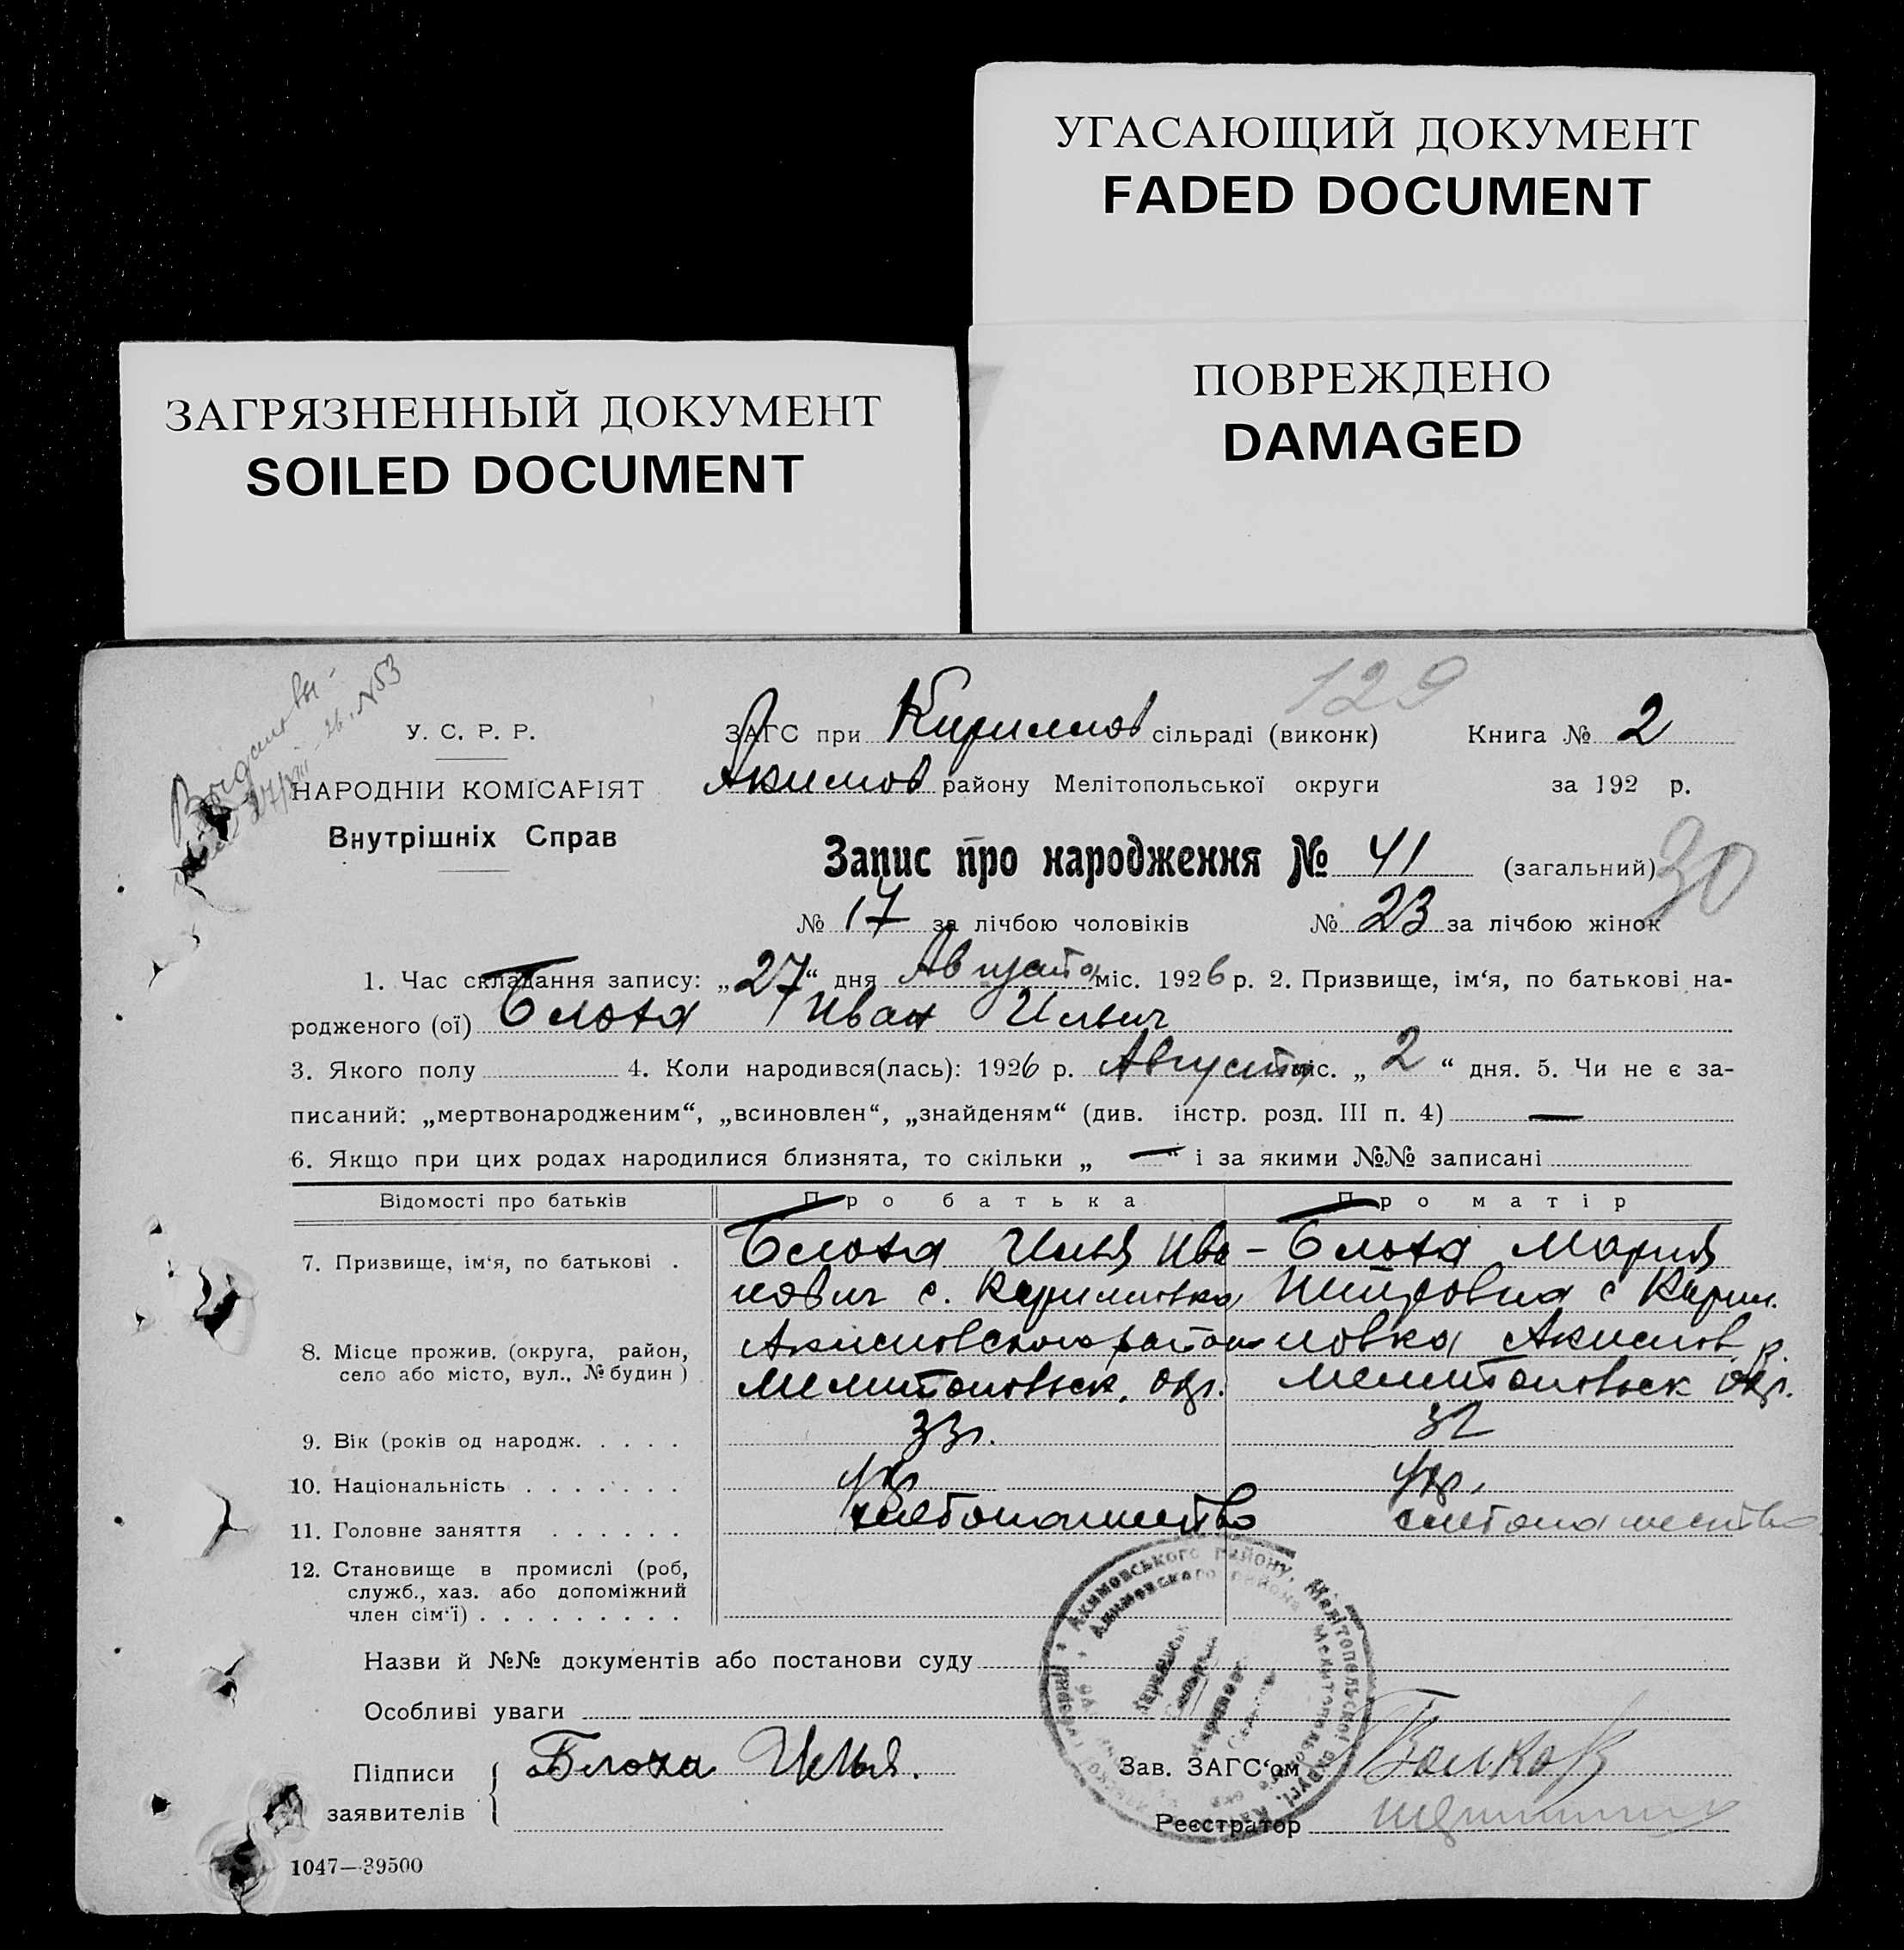 УГАСАЮЩИЙ ДОКУМЕНТ
FADED DOCUMENT
ЗАГРЯЗНЕННЫЙ ДОКУМЕНТ
SOILED DOCUMENT
ПОВРЕЖДЕНО
DAMAGED
№53
129
У. С. Р. Р.
НАРОДНІЙ КОМІСАРІЯТ
Внутрішніх Справ
ЗАГС при Кирилов сільраді (виконк) Книга № 2
Акимов району Мелітопольської округи за 192 р.
Запис про народження № 41 (загальний)
30
№ 17 за лічбою чоловіків № 23 за лічбою жінок
1. Час складання запису: „27“ дня Августа міс. 1926 р. 2. Призвище, ім‘я, по батькові на-
родженого (ої) Блоха Иван Ильич
3. Якого полу 4. Коли народився(лась): 1926 р. Августа міс. „ 2 “ дня. 5. Чи не є за-
писаний: „мертвонародженим“, „всиновлен“, „знайденям“ (див. інстр. розд. III п. 4) —
6. Якщо при цих родах народилися близнята, то скільки „ — “ і за якими №№ записані
Відомості про батьків Про батька Про матір
7. Призвище, ім‘я, по батькові . Блоха Илья Ива- Блоха Мария
нович с. Кирилловка с Кирил.
8. Місце прожив. (округа, район, Акимовского район ловка Акимов. р.
село або місто, вул., № будин ) Мелитопольск. окр. Мелитопольск окр.
9. Вік (років од народж. . . . . 33 г. 32
10. Національність . . . . . . . укр укр.
11. Головне заняття . . . . . . хлебопашество хлебопашество
12. Становище в промислі (роб,
служб., хаз. або допоміжний
член сім‘ї) . . . . . . . . .
Акимовського району, Мелітопольської округи
Акимовского района Мелитопольского
Назви й №№ документів або постанови суду
Особливі уваги
Підписи
заявителів
Блоха Илья.
Зав. ЗАГС‘ом Волков
Реєстратор
1047—39500